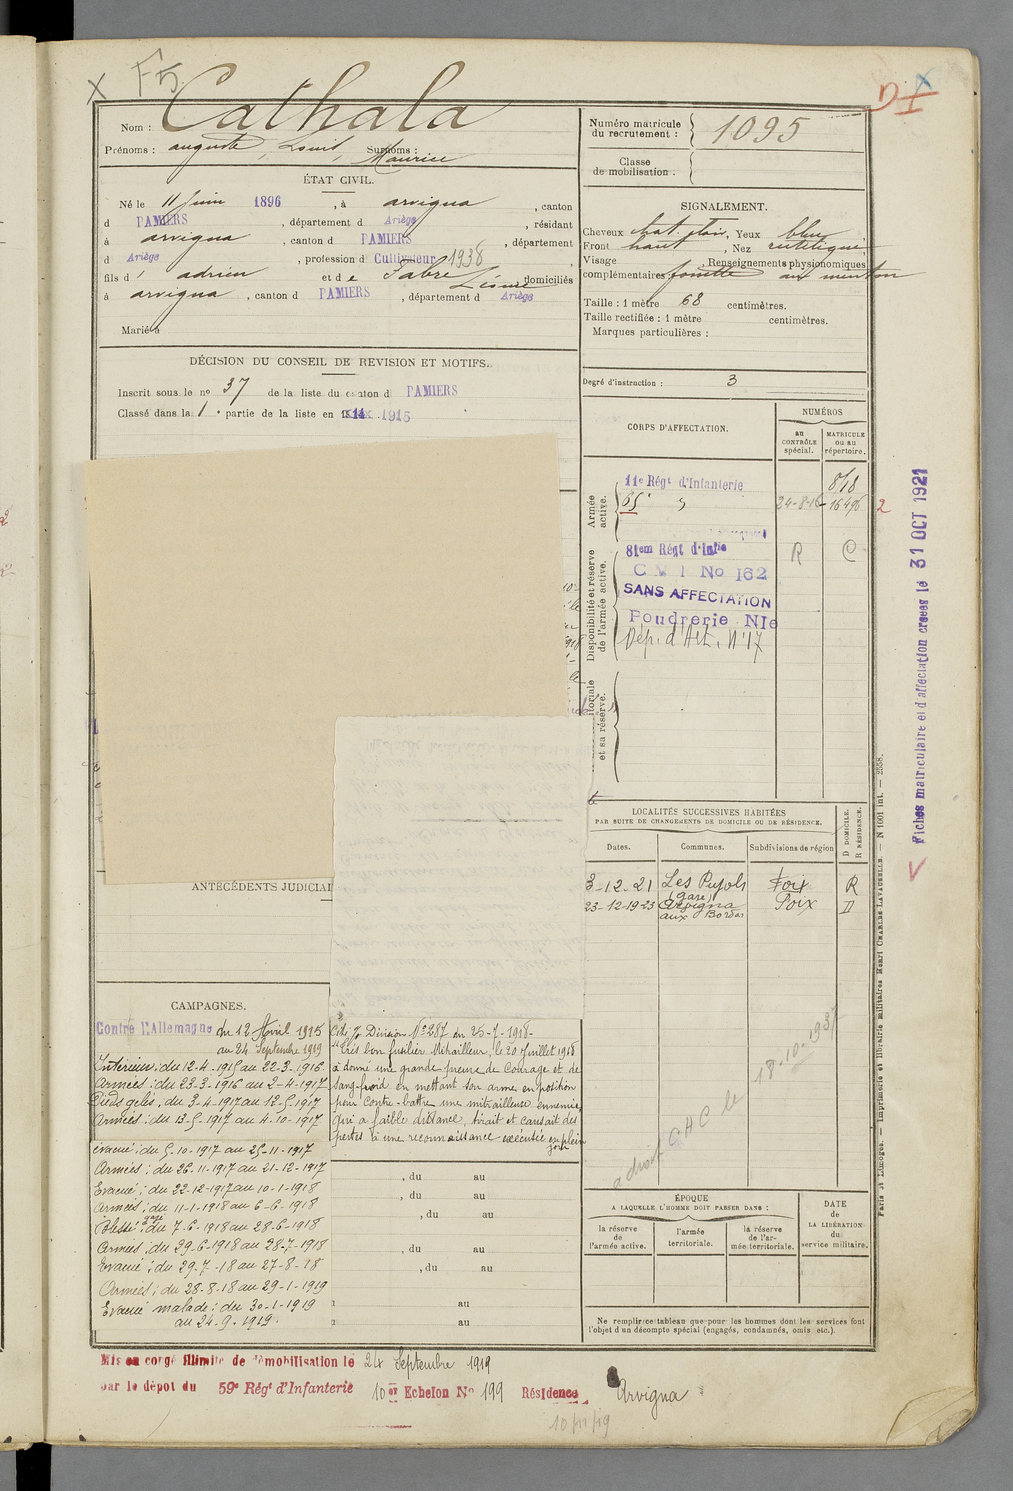 X F5
Nom : Cathala
Prénoms : auguste, Louis, Surnoms : Maurice
ÉTAT CIVIL.
Né le 11 Juin 1896, à arvigna, canton
d PAMIERS, département d Ariège, résidant
à arvigna, canton d PAMIERS, département
d Ariège, profession d Cultivateur 1938,
fils d' adrien et de Fabre domiciliés
à arvigna, canton d PAMIERS, département d Ariège
Marié à
DÉCISION DU CONSEIL DE REVISION ET MOTIFS.
Inscrit sous le nº 37 de la liste du canton d PAMIERS
Classé dans la 1e partie de la liste en 1915
ANTÉCÉDENTS JUDICIAI
CAMPAGNES.
Contre l'Allemagne du 12 Avril 1915
au 24 Septembre 1919
Intérieur : du 12-4-1915 au 22-3-1916
Armées : du 23-3-1916 au 2-4-1917
Pieds gelés, du 3-4-1917 au 12-5-1917
Armées : du 13-5-1917 au 4-10-1917
évacué : du 5-10-1917 au 25-11-1917
Armées : du 26-11-1917 au 21-12-1917
Evacué : du 22-12-1917 au 10-1-1918
Armées : du 11-1-1918 au 6-6-1918
Blessé : gazé du 7-6-1918 au 28-6-1918
Armées : du 29-6-1918 au 28-7-1918
Evacué : du 29-7-18 au 27-8-18
Armées : du 28-8-18 au 29-1-1919
Evacué malade : du 30-1-1919
au 24-9-1919.
Cité Division Nº 287 du 25-7-1918-
"Très bon fusilier Mitrailleur, le 20 Juillet 1918
a donné une grande preuve de courage et de
sang-froid en mettant son arme en position
pour contre-battre une mitrailleuse ennemie,
qui à faible distance, tirait et causait des
pertes à une reconnaissance exécutée en plein
jour
, du au
, du au
, du au
, du au
, du au
au
au
Mis en congé illimité de démobilisation le 24 Septembre 1919
par le dépôt du 59e Régt d'Infanterie 10er Echelon No 199 Résidence Arvigna
10/11/19
Numéro matricule
du recrutement : 1095
Classe
de mobilisation :
SIGNALEMENT.
Cheveux chat. clair, Yeux bleu
Front haut, Nez rectiligne
Visage , Renseignements physionomiques
complémentaires fossette au menton
Taille : 1 mètre 68 centimètres.
Taille rectifiée : 1 mètre centimètres.
Marques particulières :
Degré d'instruction : 3
CORPS D'AFFECTATION.
NUMÉROS
au
CONTRÔLE
spécial.
MATRICULE
ou au
répertoire.
Armée
active.
11e Régt d'Infanterie 818
65e 24-8-16 - 16496 2
Disponibilité et réserve
de l'armée active.
81em Régt d'Infie R C
C M I No 162
SANS AFFECTATION
Poudrerie Nle
Dép. d'Art. Nº 17
itoriale
et sa réserve.
LOCALITÉS SUCCESSIVES HABITÉES
PAR SUITE DE CHANGEMENTS DE DOMICILE OU DE RÉSIDENCE.
D DOMICILE.
R RÉSIDENCE.
Dates. Communes. Subdivisions de région
3-12-21 Les Pujols Foix R
(gare)
23-12-1923 Arvigna Foix D
aux Bordes
a droit C H C le 18-10-1937
ÉPOQUE
A LAQUELLE L'HOMME DOIT PASSER DANS :
la réserve
de
l'armée active.
l'armée
territoriale.
la réserve
de l'ar-
mée territoriale.
DATE
de
LA LIBÉRATION
du
service militaire.
Ne remplir ce tableau que pour les hommes dont les services font
l'objet d'un décompte spécial (engagés, condamnés, omis etc.).
Paris et Limoges. — Imprimerie et librairie militaires Henri CHARLES-LAVAUZELLE. — N 1001 int. — 2558.
Fiches matriculaire et d'affectation créées le 31 OCT 1921